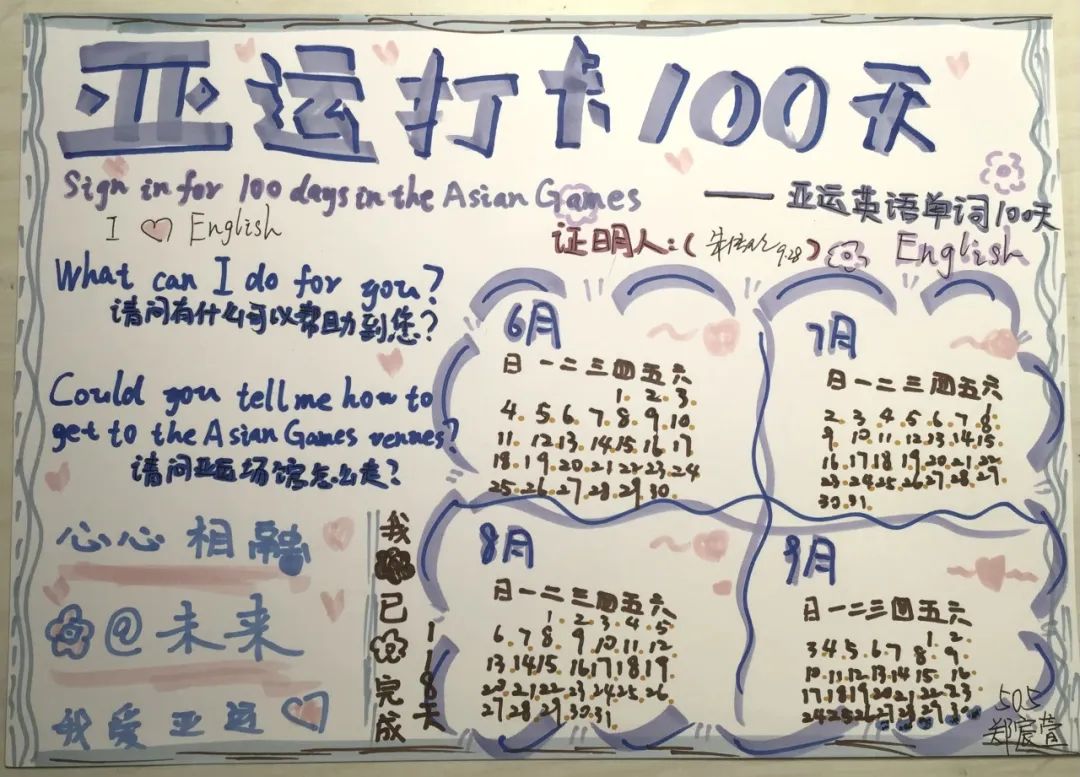 亚运打卡100天
Sign in for 100 days in the Asian Games
——亚运英语单词100天
I ♡ English
证明人:( 9.28)
English
What can I do for you?
请问有什么可以帮助到您?
Could you tell me how to
get to the Asian Games venues?
请问亚运场馆怎么走?
心心相融
@未来
我爱亚运
我已完成
118天
6月
日一二三四五六
1 2 3
4 5 6 7 8 9 10
11 12 13 14 15 16 17
18 19 20 21 22 23 24
25 26 27 28 29 30
7月
日一二三四五六
1
2 3 4 5 6 7 8
9 10 11 12 13 14 15
16 17 18 19 20 21 22
23 24 25 26 27 28 29
30 31
8月
日一二三四五六
1 2 3 4 5
6 7 8 9 10 11 12
13 14 15 16 17 18 19
20 21 22 23 24 25 26
27 28 29 30 31
9月
日一二三四五六
1 2
3 4 5 6 7 8 9
10 11 12 13 14 15 16
17 18 19 20 21 22 23
24 25 26 27 28 29 30
505
郑宸萱